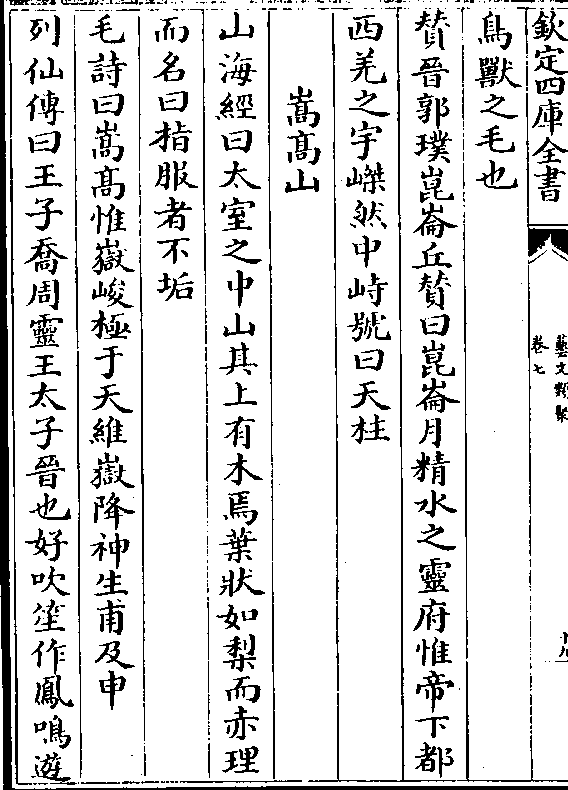 欽定四庫全書
藝文類聚
卷七
鳥獸之毛也
贊晉郭璞崑崙丘贊曰崑崙月精水之靈府惟帝下都
西羌之宇嶸然中峙號曰天柱
嵩髙山
山海經曰太室之中山其上有木焉葉狀如梨而赤理
而名曰栺服者不垢
毛詩曰嵩髙惟嶽峻極于天維嶽降神生甫及申
列仙傳曰王子喬周靈王太子晉也好吹笙作鳳鳴遊